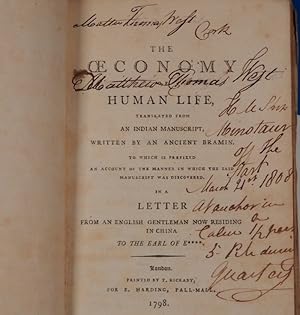 Matthew Thomas West
Cork
THE
ŒCONOMY
Matthew Thomas West
HUMAN LIFE,
TRANSLATED FROM
AN INDIAN MANUSCRIPT,
WRITTEN BY AN ANCIENT BRAMIN.
TO WHICH IS PREFIXED
AN ACCOUNT OF THE MANNER IN WHICH THE SAID
MANUSCRIPT WAS DISCOVERED.
IN A
LETTER
FROM AN ENGLISH GENTLEMAN NOW RESIDING
IN CHINA
TO THE EARL OF E****.
Minotaur
of the
March 21st 1808
London.
PRINTED BY T. RICKABY,
FOR E. HARDING, PALL-MALL.
1798.